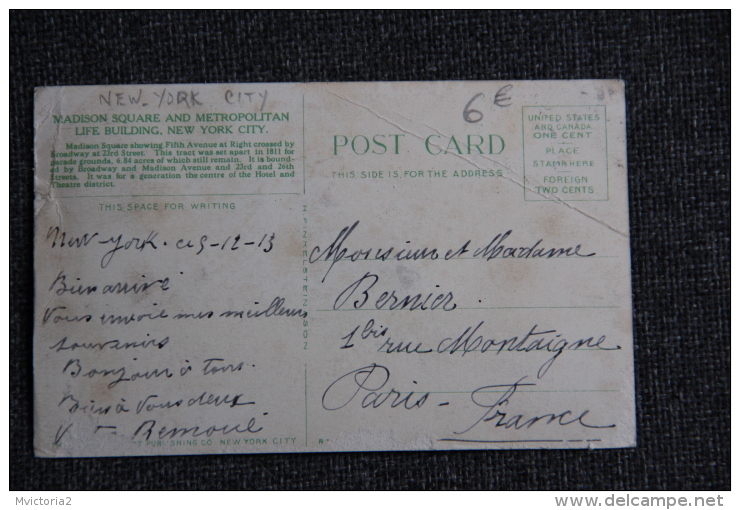 NEW-YORK CITY
6€
MADISON SQUARE AND METROPOLITAN
LIFE BUILDING, NEW YORK CITY.
Madison Square showing Fifth Avenue at Right crossed by
Broadway at 23rd Street. This tract was set apart in 1811 for
parade grounds, 6.84 acres of which still remain. It is bound-
ed by Broadway and Madison Avenue and 23rd and 26th
Streets. It was for a generation the centre of the Hotel and
Theatre district.
THIS SPACE FOR WRITING
POST CARD
THIS SIDE IS FOR THE ADDRESS
UNITED STATES
AND CANADA
ONE CENT
PLACE
STAMP HERE
FOREIGN
TWO CENTS
New-York. ce 9-12-13
Bien arrivé
Vous envoie mes meilleurs
souvenirs
Bonjour à tous.
Bien à vous deux
Monsieur et Madame
Bernier.
1 bis rue Montaigne
Paris-France
H FINKELSTEIN & SON
PUBLISHING CO. NEW YORK CITY
Mvictoria2
delcampe.net